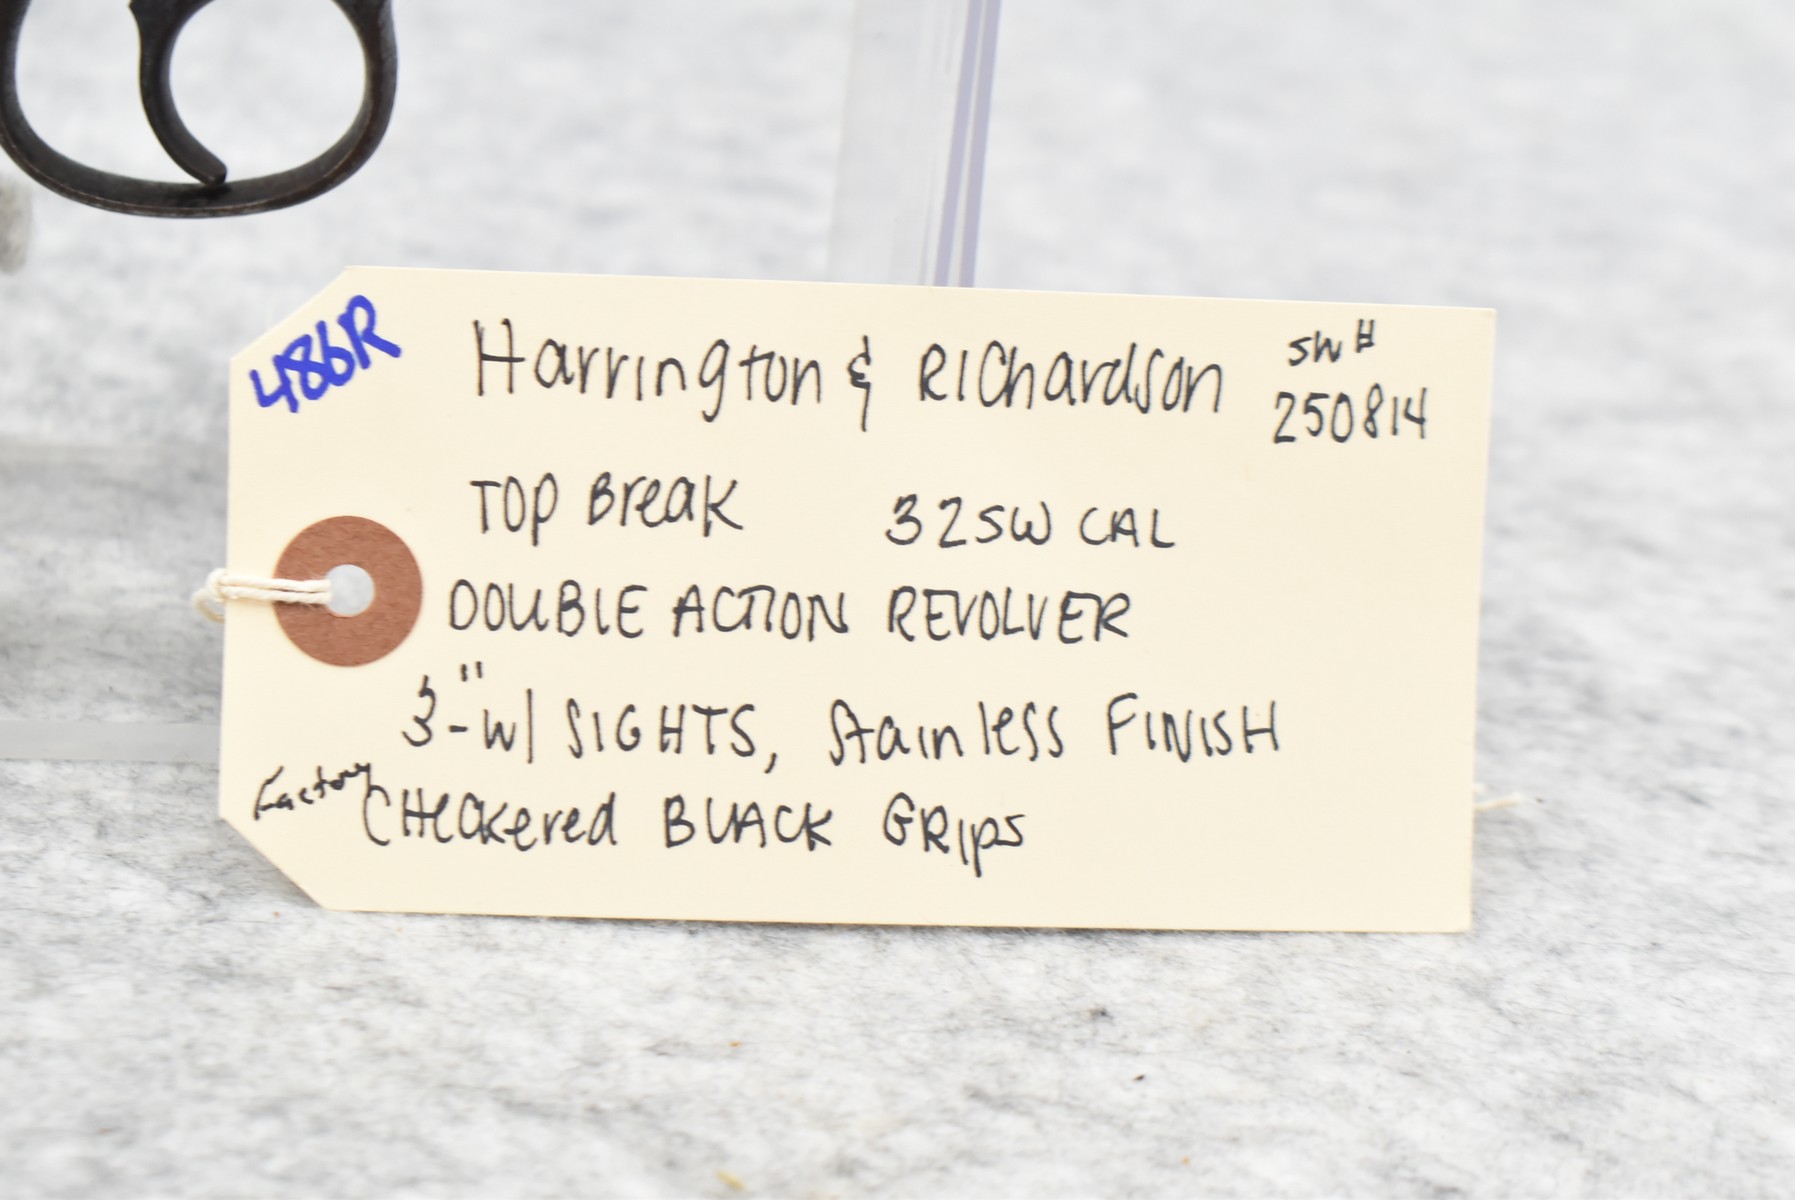 486R
Harrington & RIChardson
SW #
250814
TOP Break 32SW CAL
DOUBLE ACTION REVOLVER
3-" w/ SIGHTS, Stainless FINISH
Factory CHeckered BLACK GRIps